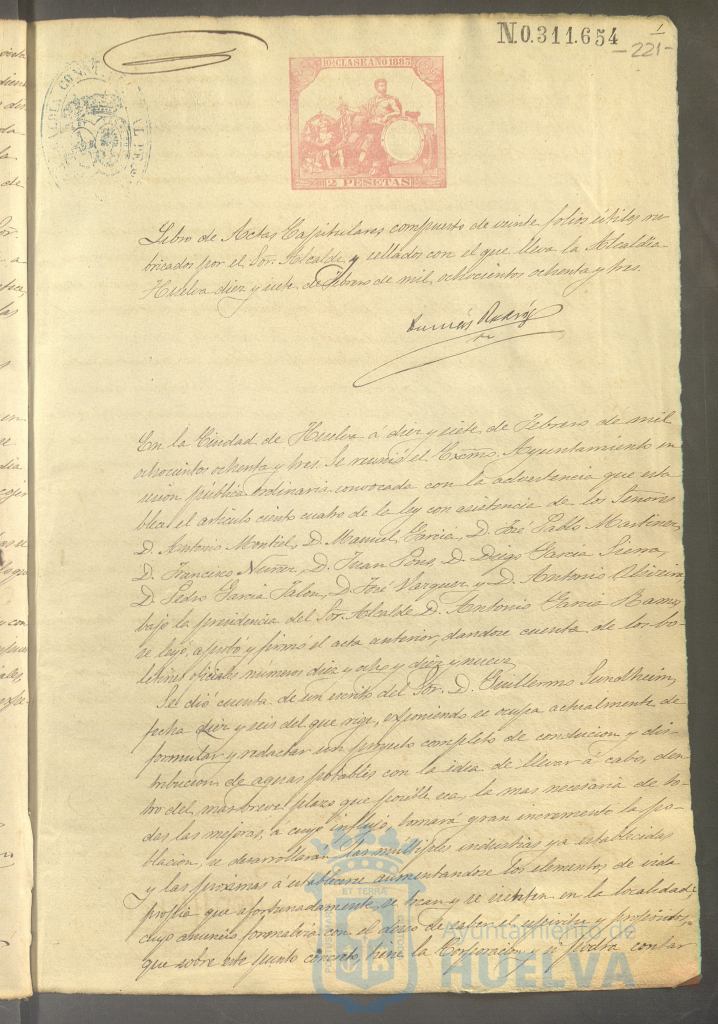 N.0.311.654
1
-221-
ALCALDIA CONSTITUCIONAL DE
10ª CLASE AÑO 1883
2 PESETAS
Libro de Actas Capitulares compuesto de veinte folios útiles ru-
bricados por el Sor. Alcalde y sellados con el que lleva la Alcaldía
Huelva diez y siete de Febrero de mil ochocientos ochenta y tres.
En la Ciudad de Huelva á diez y siete de Febrero de mil
ochocientos ochenta y tres. Se reunió el Excmo. Ayuntamiento en
sesion pública ordinaria convocada con la advertencia que esta
blece el artículo ciento cuatro de la ley con asistencia de los Señores
D. Antonio Montiel, D. Manuel Garcia, D. José Pablo Martinez,
D. Francisco Nuñez, D. Juan Pons, D. Diego Garcia Sierra,
D. Pedro Garcia Jalon, D. José Vazquez y D. Antonio Oliveira
bajo la presidencia del Sor. Alcalde D. Antonio Garcia Ramos
se leyó, aprobó y firmó el acta anterior, dandose cuenta de los bo-
letines oficiales números diez y ocho y diez y nueve
Se dió cuenta de un escrito del Sor. D. Guillermo Sundheim,
fecha diez y seis del que rige, exponiendo se ocupa actualmente de
formular y redactar un proyecto completo de conduccion y dis-
tribucion de aguas potables con la idea de llevar á cabo, den-
tro del mas breve plazo que posible sea, la mas necesaria de to-
das las mejoras, á cuyo influjo, tomará gran incremento la po-
blacion, se desarrollarán las múltiples industrias ya establecidas
y las próximas á establecerse aumentandose los elementos de vida
propia que afortunadamente se crean y se sienten en la localidad:
cuyo anuncio formaliza con el deseo de saber el espiritu y propósitos
que sobre este punto concreto, tiene la Corporacion y si podrá contar
ET TERRA
Ayuntamiento de
HUELVA